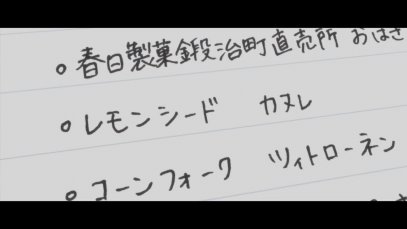 ○ 春日製菓鍛治町直売所 おはぎ
○ レモンシード カヌレ
○ コーンフォーク ツィトローネン